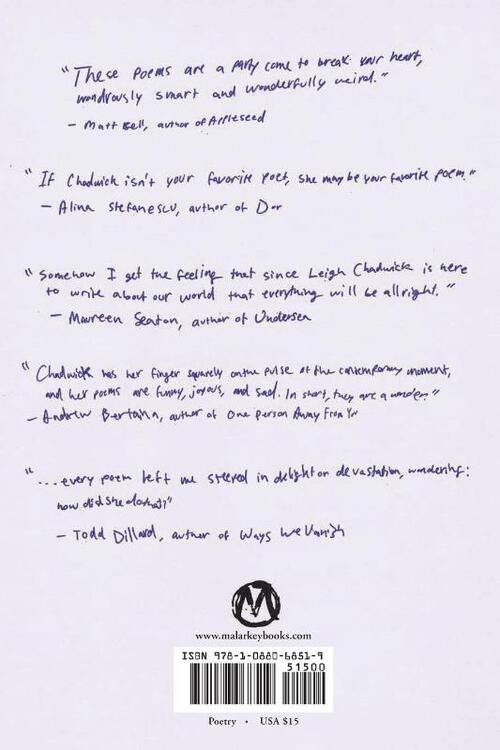 "These poems are a party come to break your heart,
wondrously smart and wonderfully weird."
- Matt Bell, author of Appleseed
"If Chadwick isn't your favorite poet, she may be your favorite poem."
- Alina Stefanescu, author of Dor
"Somehow I get the feeling that since Leigh Chadwick is here
to write about our world that everything will be allright."
- Maureen Seaton, author of Undersea
"Chadwick has her finger squarely on the pulse of the contemporary moment,
and her poems are funny, joyous, and sad. In short, they are a wonder."
- Andrew Bertaina, author of One Person Away From You
"...every poem left me steeped in delight or devastation, wondering:
how did she do that?"
- Todd Dillard, author of Ways We Vanish
M
www.malarkeybooks.com
ISBN 978-1-0880-6851-9
51500
Poetry • USA $15